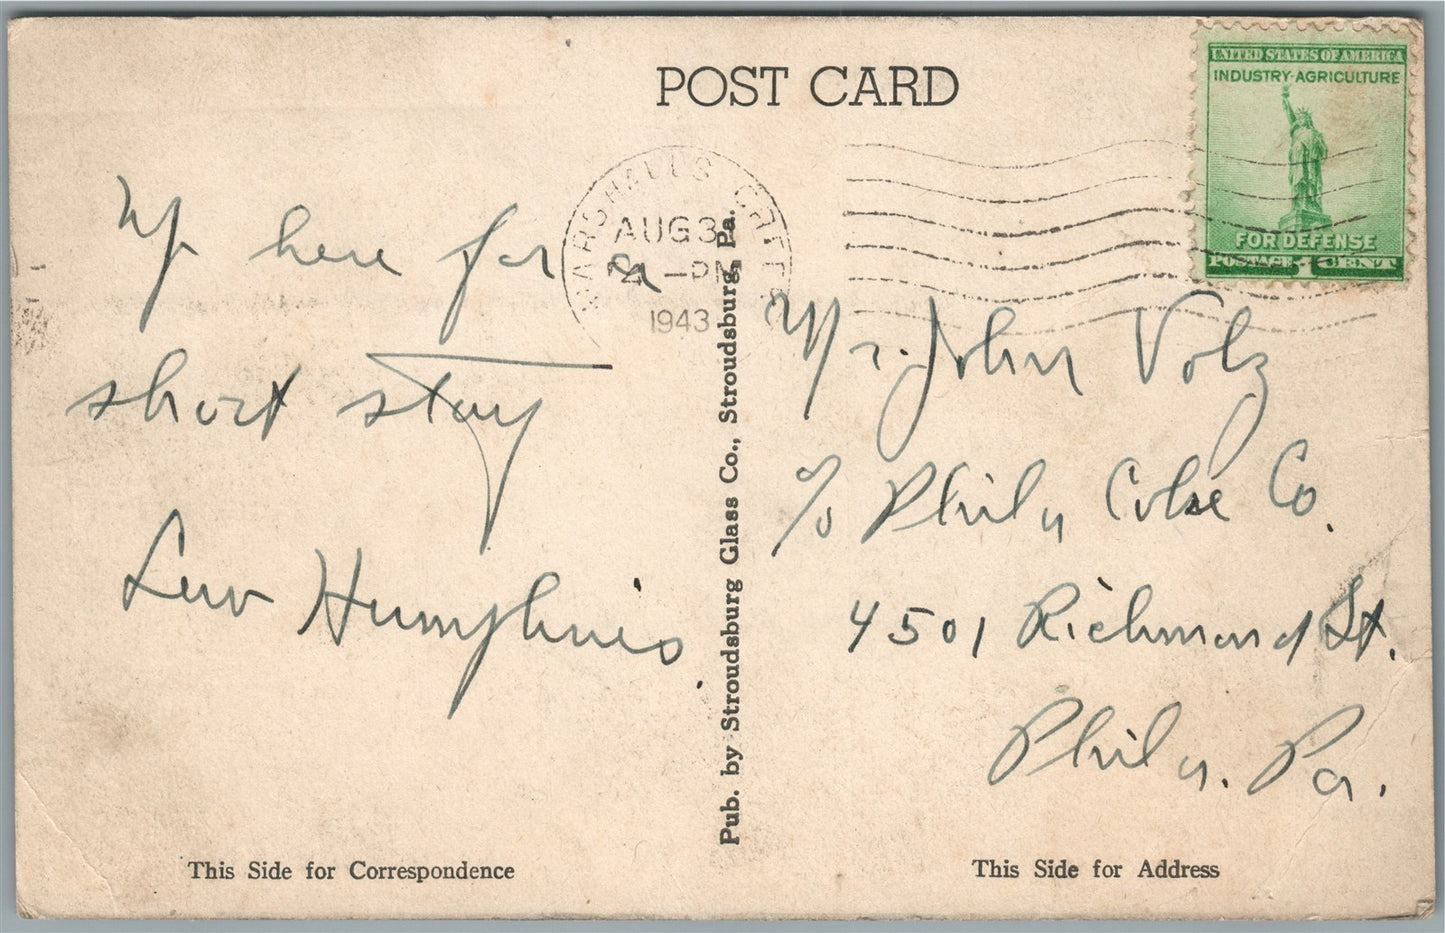 POST CARD
UNITED STATES OF AMERICA
INDUSTRY·AGRICULTURE
FOR DEFENSE
POSTAGE 1 CENT
MARSHALLS CREEK
AUG 3
2 —PM
1943
Up here for a
short stay
Lew Humphries.
Mr. John Volz
c/o Phila Coke Co.
4501 Richmond St.
Phila. Pa.
Pub. by Stroudsburg Glass Co., Stroudsburg, Pa.
This Side for Correspondence
This Side for Address